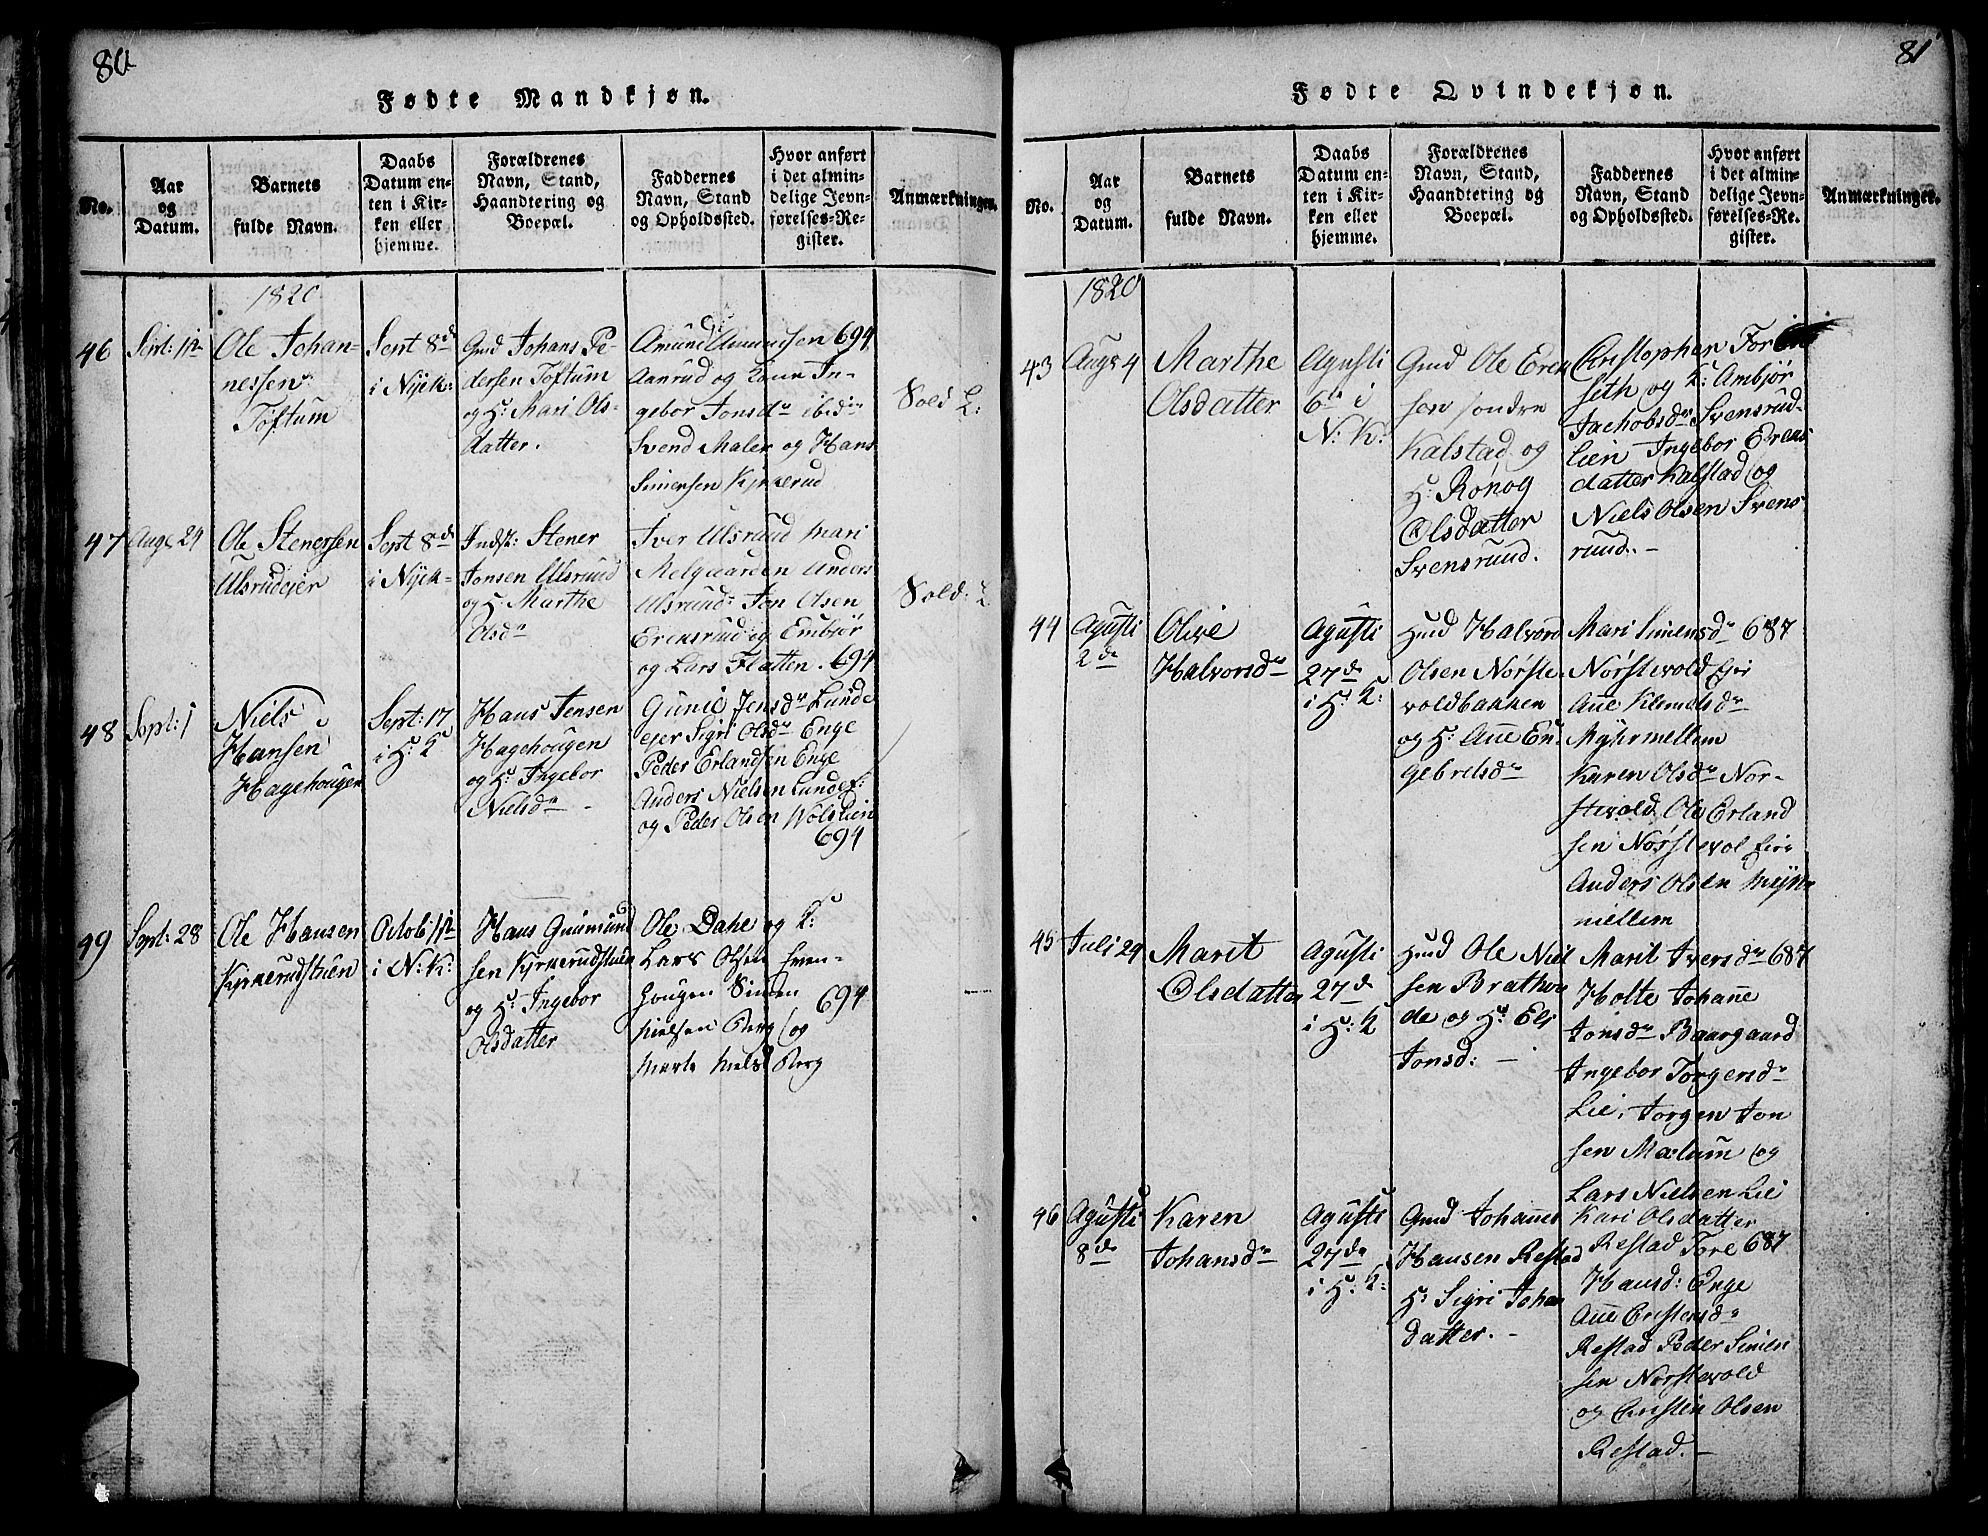 80
Fødte Mandkjøn.
No.
Aar
og
Datum.
Barnets
fulde Navn.
Daabs
Datum en-
ten i Kir-
ken eller
hjemme.
Forældrenes
Navn, Stand,
Haandtering og
Boepæl.
Faddernes
Navn, Stand
og Opholdssted.
Hvor anført
i det almin-
delige Jevn-
førelses-Re-
gister.
Anmærkninger.
1820
46
Sept:
Ole Johan-
nessen
Toftum
Sept 8d
i Nyek:
Gmd Johans Pe-
dersen Toftum
og H: Mari Ols-
datter.
Amund Amundsen 694
Aanrud og Kone In-
gebor Jonsdr ibid
Svend Maler og Hans
Simensen Kjrkerud
Sold
47
Aug 29
Ole Stenersen
Ulsrudejer
Sept 8d
i Nyek-
Indst: Stener
Jonsen Ulsrud
og H Marthe
Olsdr
Iver Ulsrud Mari
Melgaarden Anders
Ulsrud: Jon Olsen
Erensrud og Embjør
og Lars Flatten. 694
Sold:
48
Sept: 1
Niels
Hansen
Hagehougen
Sept: 17
i H: K
Hans Jensen
Hagehougen
og H: Ingebor
Nielsdr -
Gunil Jensdr Lunde
ejer Sigri Olsdr Enge
Peder Erlandsen Enge
Anders Nielsen Lunde
og Peder Olsen Wolslien
694
49
Sept: 28
Ole Hansen
Kjrkerudstuen
Octob:
i N: K:
Hans Gudmund
sen Kjrkerudstuen
og H: Ingebor
Olsdatter
Ole Dahe og K:
Lars Olsen Even-
hougen Simen
Nielsen Berg og
694
Marte Niels Berg
81
Fødte Qvindekjøn.
No.
Aar
og
Datum.
Barnets
fulde Navn.
Daabs
Datum en-
ten i Kir-
ken eller
hjemme.
Forældrenes
Navn, Stand,
Haandtering og
Boepæl.
Faddernes
Navn, Stand
og Opholdssted.
Hvor anført
i det almin-
delige Jevn-
førelses-Re-
gister.
Anmærkninger.
1820
43
Aug: 4
Marthe
Olsdatter
Agusti
6te i
N: K:
Gmd Ole Eren
sen søndre
Kalstad og
H: Rønog
Olsdatter
Svensruud.
Christopher
seth og K: Ambjør
Jachobsdr Svensrud-
lien Ingebor Erens
datter Kalstad og
Niels Olsen Svens
ruud. -
44
Agusti
2de
Olive
Halvorsdr
Agusti
27de
i H: K:
Hmd Halvord
Olsen Nørste
voldbakken
og H: Añe En-
gebretsdr
Mari Simensdr 687
Nørstevold Ejer
Añe Klemetsdr
Myhrmellem
Karen Olsdr Nor-
stevold Ole Erland
sen Nørstevol Eier
Anders Olsen Myhr
mellem
45
Juli 29
Marit
Olsdatter
Agusti
27de
i H: K
Hmd Ole Niel
sen Brathen
de og H: Eli
Jonsd: -
Marit Iversdr 687
Holte Johañe
Jonsdr Baargaard
Ingebor Torgersdr
Lie, Torgen Jon
sen Mælum og
Lars Nielsen Lie
46
Agusti
8de
Karen
Johansdr
Agusti
27de
i H: K:
Gmd Johañes
Hansen Restad
H: Sigri Johan
datter. -
Kari Olsdatter
Restad Tore 687
Hansd: Enge
Añe Cristensdr
Restad Peder Simen
sen Nørstevold
og Christen Olsen
Restad. -